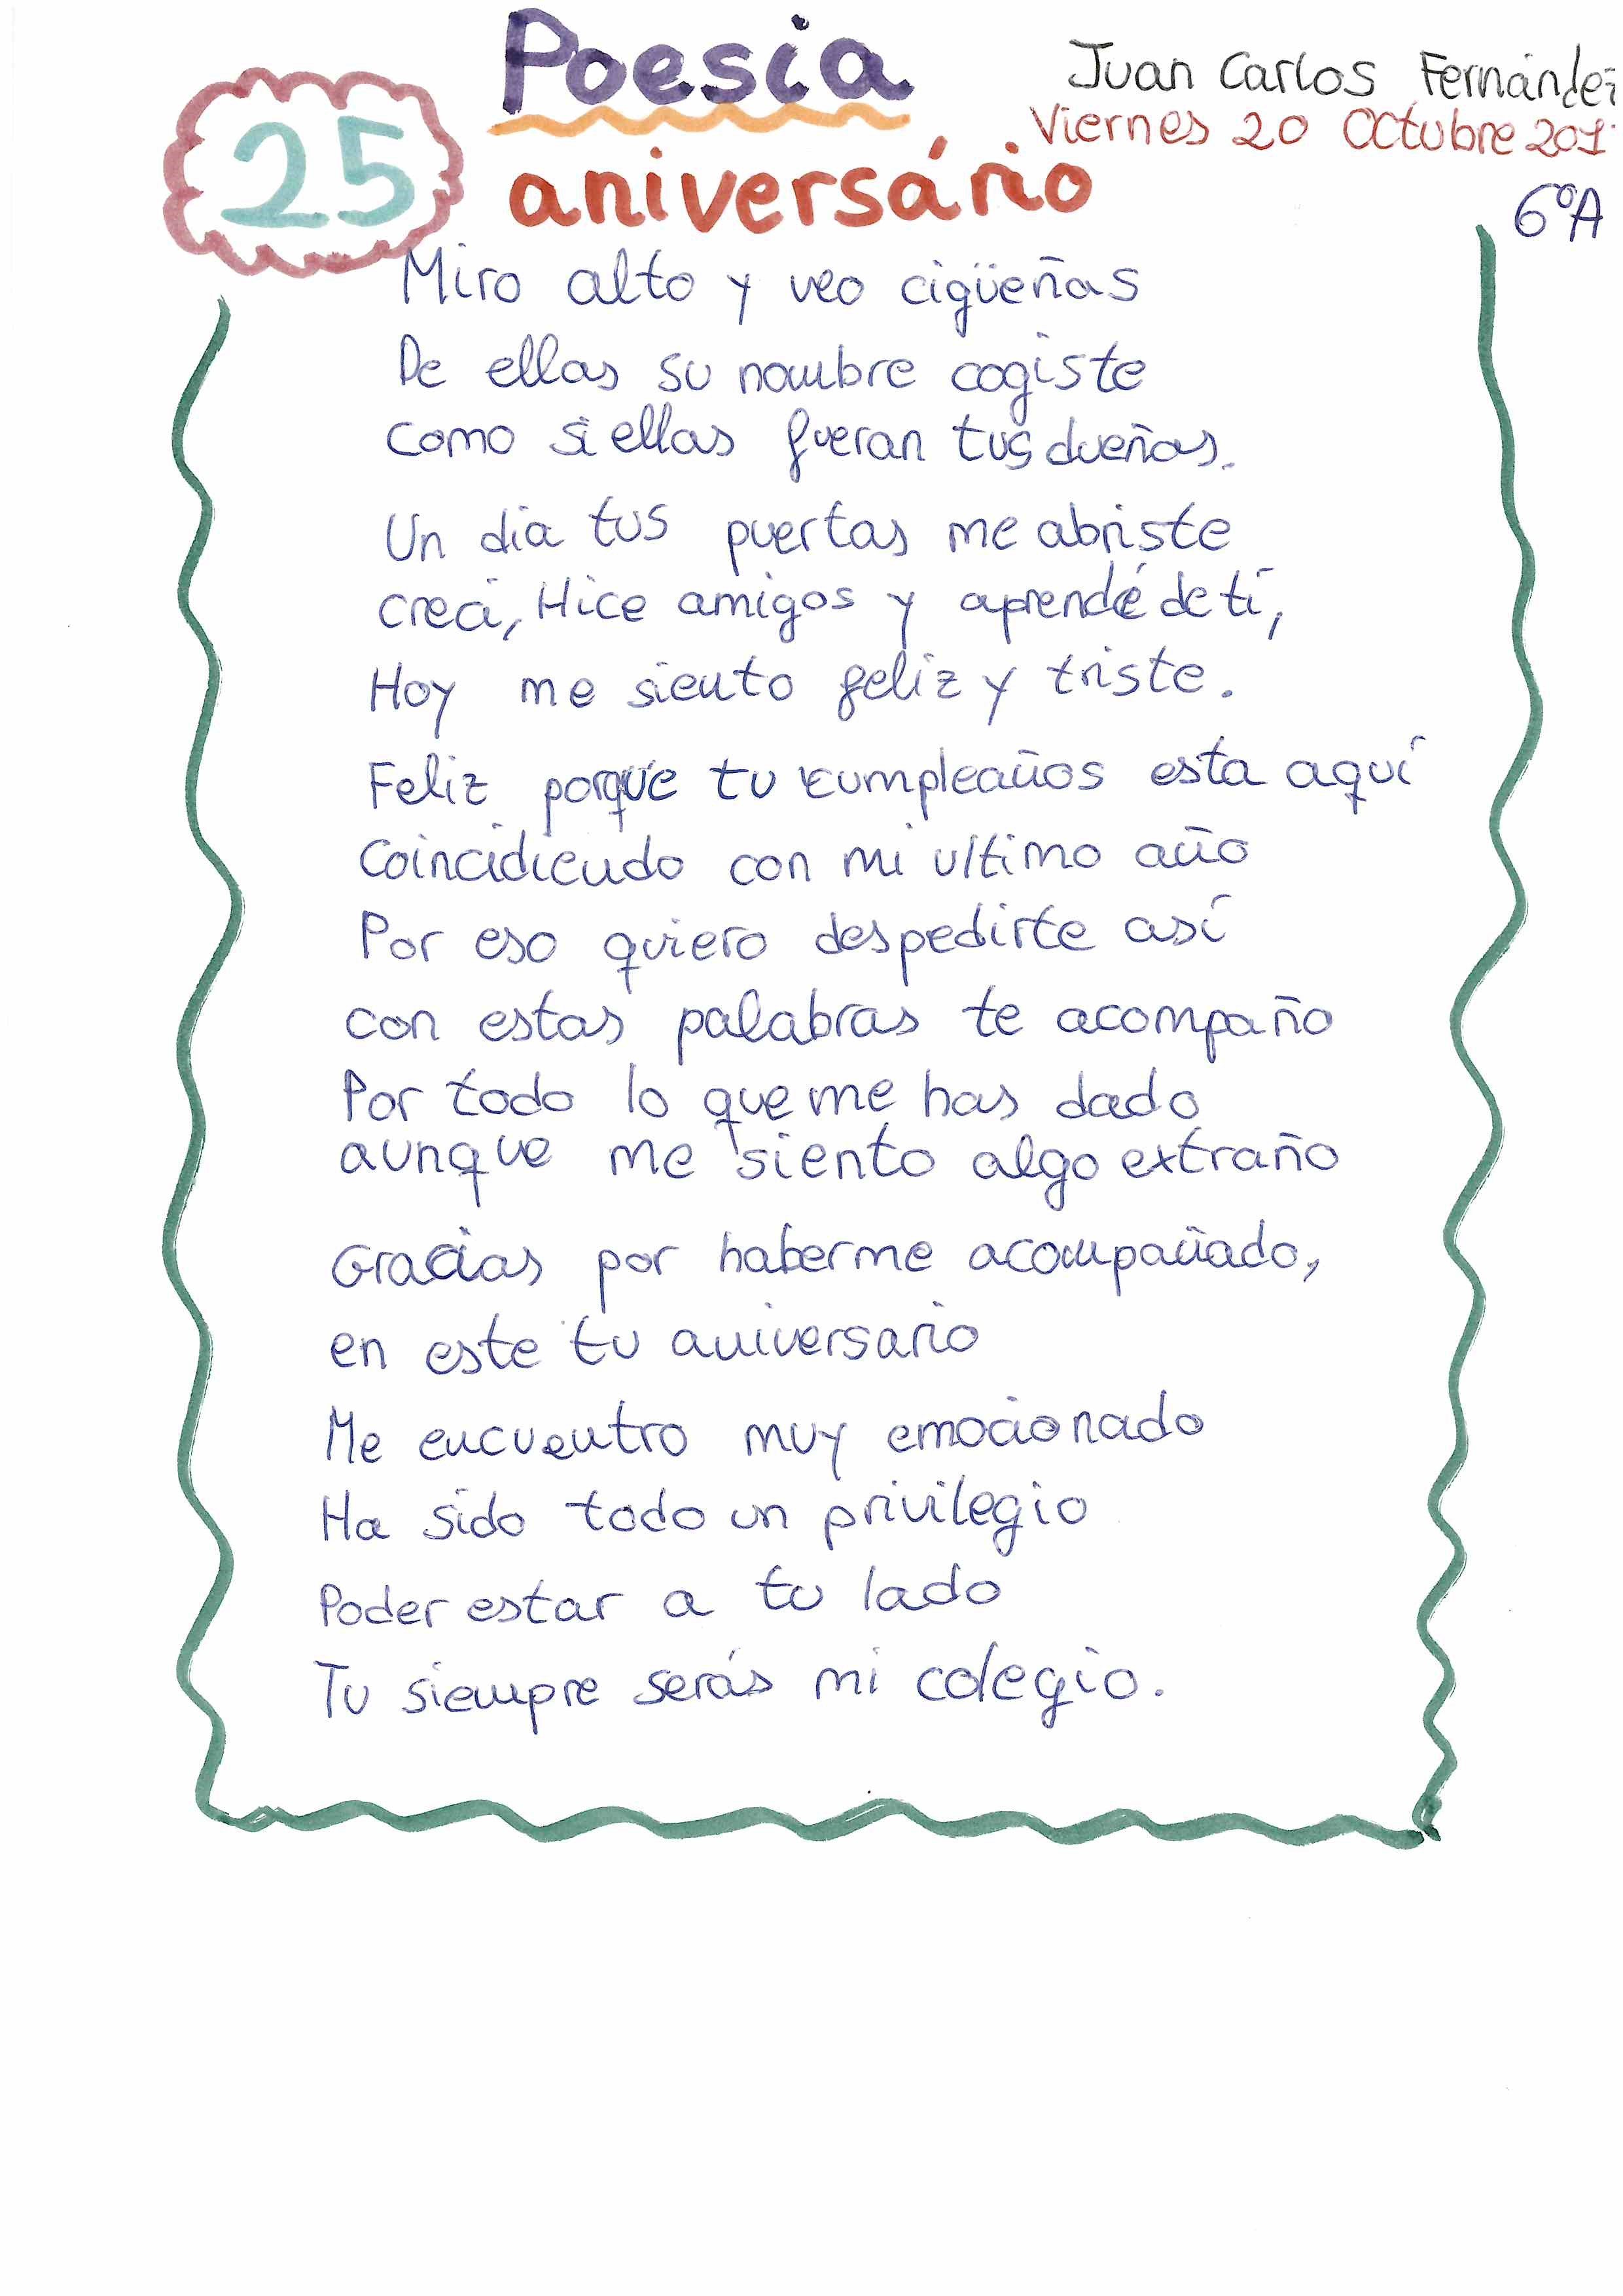 Poesia
Juan Carlos Fernández
Viernes 20 Octubre 201
25
aniversário
6ºA
Miro alto y veo cigüeñas
De ellas su nombre cogiste
como si ellas fueran tus dueñas.
Un dia tus puertas me abriste
creci, Hice amigos y aprendé de ti,
Hoy me siento feliz y triste.
Feliz porque tu cumpleaños esta aquí
Coincidiendo con mi ultimo año
Por eso quiero despedirte así
con estas palabras te acompaño
Por todo lo que me has dado
aunque me siento algo extraño
Gracias por haberme acompañado,
en este tu aniversario
Me encuentro muy emocionado
Ha sido todo un privilegio
Poder estar a tu lado
Tu siempre serás mi colegio.